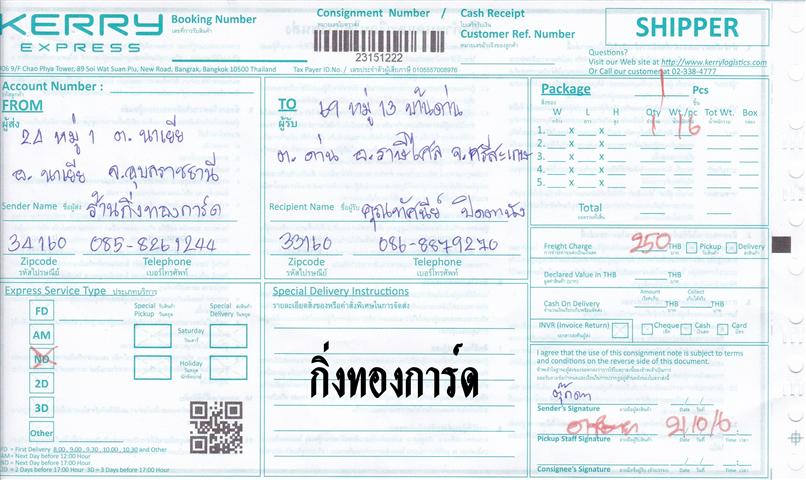 KERRY EXPRESS
Booking Number
เลขที่การรับสินค้า
Consignment Number /
หมายเลขใบตราส่ง
23151222
Cash Receipt
ใบเสร็จรับเงิน
Customer Ref. Number
หมายเลขอ้างอิงของลูกค้า
SHIPPER
Questions?
Visit our Web site at http://www.kerrylogistics.com
Or Call our customer at 02-338-4777
906 9/F Chao Phya Tower, 89 Soi Wat Suan Plu, New Road, Bangrak, Bangkok 10500 Thailand
Tax Payer ID.No. / เลขประจำตัวผู้เสียภาษี 0105557008976
Account Number :
FROM
ผู้ส่ง
24 หมู่ 1 ต. นาเยีย
อ. นาเยีย จ.อุบลราชธานี
Sender Name ชื่อผู้ส่ง ร้านกิ่งทองการ์ด
34160 085-8261244
Zipcode Telephone
รหัสไปรษณีย์ เบอร์โทรศัพท์
TO
ผู้รับ
69 หมู่ 13 บ้านด่าน
ต. ด่าน อ.ราษีไศล จ.ศรีสะเกษ
Recipient Name ชื่อผู้รับ คุณทัศนีย์
33160 086-8879270
Zipcode Telephone
รหัสไปรษณีย์ เบอร์โทรศัพท์
Package 1 Pcs
สิ่งของ ชิ้น
W L H Qty Wt./pc Tot Wt. Box
1. X X 1 16
2. X X
3. X X
4. X X
5. X X
Total
Freight Charge 250 THB Pickup Delivery
Declared Value in THB THB
Amount Collect
Cash On Delivery THB
INVR (Invoice Return) Cheque Cash Card
I agree that the use of this consignment note is subject to terms
and conditions on the reverse side of this document.
ตุ๊กตา
Sender's Signature ลายมือผู้ส่งสินค้า Date วันที่ Time เวลา
21/10/16
Pickup Staff Signature Date วันที่ Time เวลา
Consignee's Signature Date วันที่ Time เวลา
Express Service Type ประเภทบริการ
FD
AM
ND
2D
3D
Other
Special Pickup
Special Delivery
Saturday
วันเสาร์
Holiday
วันหยุด
นักขัตฤกษ์
FD = First Delivery 8.00 , 9.00 , 9.30 , 10.00 , 10.30 and Other
AM = Next Day before 12:00 Hour
ND = Next Day before 17:00 Hour
2D = 2 Days before 17:00 Hour 3D = 3 Days before 17:00 Hour
Special Delivery Instructions
รายละเอียดสิ่งของหรือคำสั่งพิเศษในการจัดส่ง
กิ่งทองการ์ด